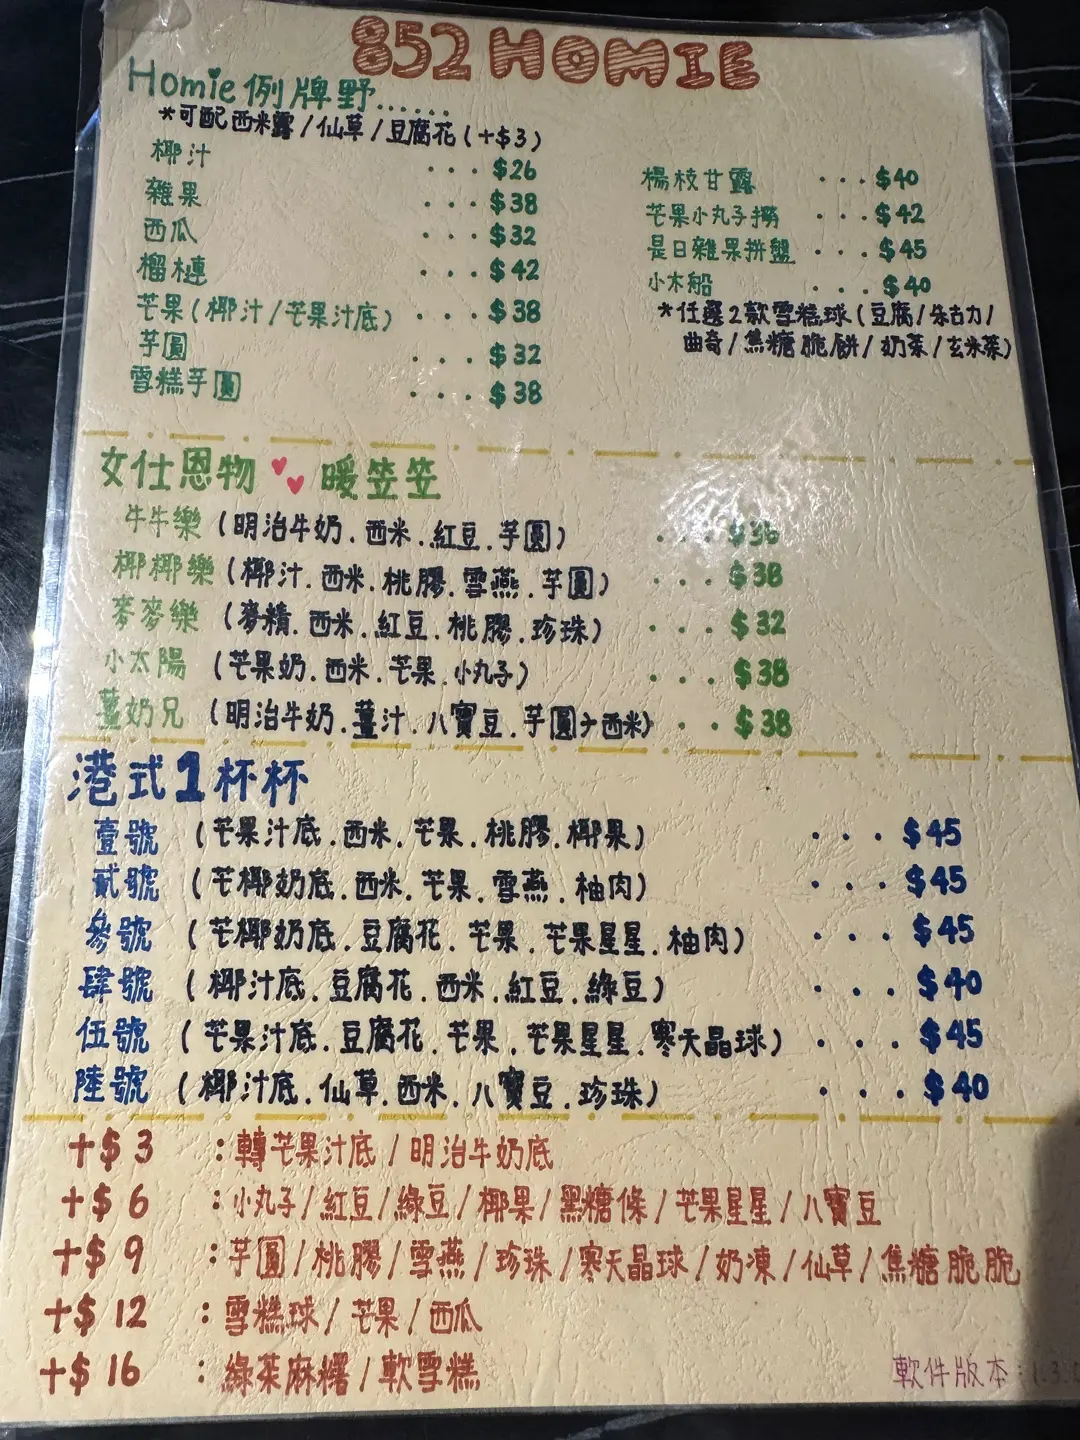 852 HOMIE
Homie例牌野......
*可配西米露/仙草/豆腐花(+$3)
椰汁 ... $26
雜果 ... $38
西瓜 ... $32
榴槤 ... $42
芒果(椰汁/芒果汁底) ... $38
芋圓 ... $32
雪糕芋圓 ... $38
楊枝甘露 ... $40
芒果小丸子撈 ... $42
是日雜果拼盤 ... $45
小木船 ... $40
*任選2款雪糕球(豆腐/朱古力/
曲奇/焦糖脆餅/奶茶/玄米茶)
女仕恩物 暖笠笠
牛牛樂(明治牛奶.西米.紅豆.芋圓) ... $36
椰椰樂(椰汁.西米.桃膠.雪燕.芋圓) ... $38
麥麥樂(麥精.西米.紅豆.桃膠.珍珠) ... $32
小太陽(芒果奶.西米.芒果.小丸子) ... $38
薑奶兄(明治牛奶.薑汁.八寶豆.芋圓+西米) .. $38
港式1杯杯
壹號(芒果汁底.西米.芒果.桃膠.椰果) ... $45
貳號(芒椰奶底.西米.芒果.雪燕.柚肉) ... $45
參號(芒椰奶底.豆腐花.芒果.芒果星星.柚肉) ... $45
肆號(椰汁底.豆腐花.西米.紅豆.綠豆) ... $40
伍號(芒果汁底.豆腐花.芒果.芒果星星.寒天晶球) ... $45
陸號(椰汁底.仙草.西米.八寶豆.珍珠) ... $40
+$3 :轉芒果汁底/明治牛奶底
+$6 :小丸子/紅豆/綠豆/椰果/黑糖條/芒果星星/八寶豆
+$9 :芋圓/桃膠/雪燕/珍珠/寒天晶球/奶凍/仙草/焦糖脆脆
+$12 :雪糕球/芒果/西瓜
+$16 :綠茶麻糬/軟雪糕
軟件版本: